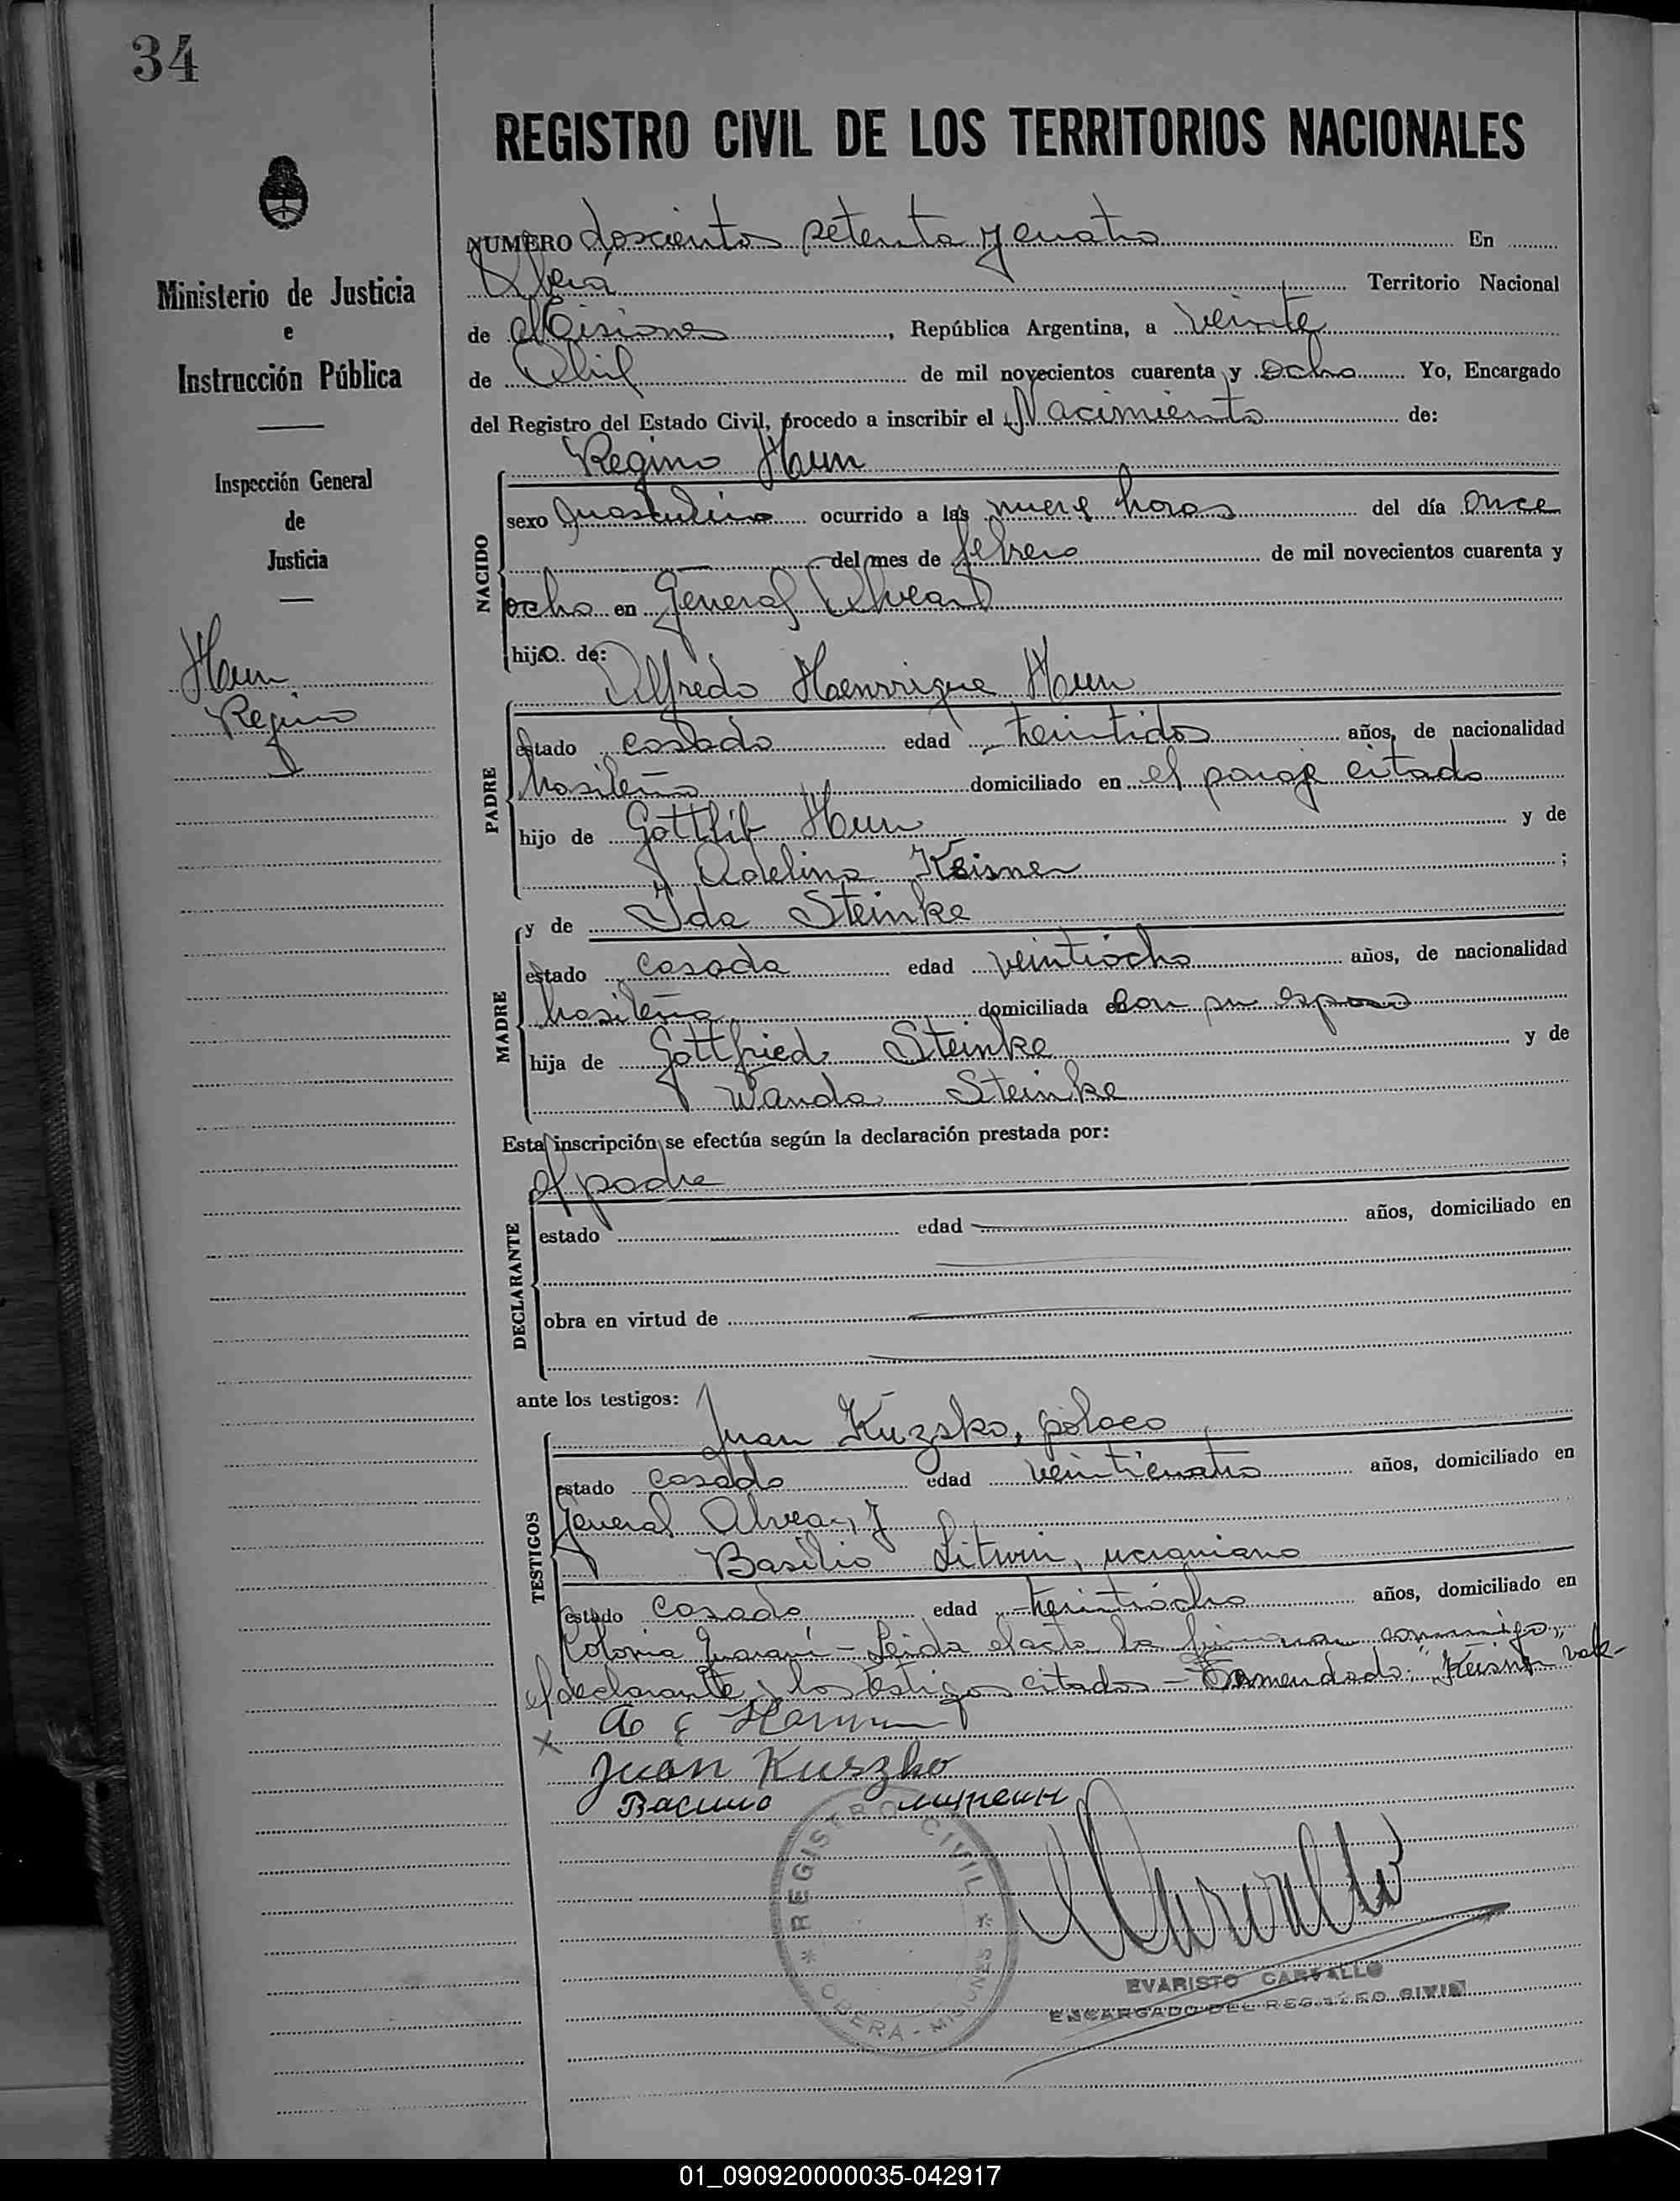 34
REGISTRO CIVIL DE LOS TERRITORIOS NACIONALES
Ministerio de Justicia
e
Instrucción Pública
Inspección General
de
Justicia
Haun
Regino
NUMERO doscientos setenta y cuatro En
Oberá Territorio Nacional
de Misiones, República Argentina, a veinte
de Abril de mil novecientos cuarenta y ocho Yo, Encargado
del Registro del Estado Civil, procedo a inscribir el Nacimiento de:
NACIDO
Regino Haun
sexo masculino ocurrido a las nueve horas del día once
del mes de febrero de mil novecientos cuarenta y
ocho en General Alvear
hijo de:
PADRE
Alfredo Haenrrique Haun
estado casado edad treintidos años, de nacionalidad
brasileña domiciliado en el paraje citado
hijo de Gottlib Haun y de
Adelina Keisner ;
MADRE
y de Ida Steinke
estado casada edad veintiocho años, de nacionalidad
brasileña domiciliada con su esposo
hija de Gottfried Steinke y de
Wanda Steinke
Esta inscripción se efectúa según la declaración prestada por:
DECLARANTE
el padre
estado edad años, domiciliado en
obra en virtud de
ante los testigos:
TESTIGOS
Juan Kuzsko, polaco
estado casado edad veinticuatro años, domiciliado en
General Alvear, y
Basilio Litwin, ucraniano
estado casado edad treintiocho años, domiciliado en
Colonia Guaraní - Leida el acta la firmaron conmigo,
el declarante y los testigos citados - Enmendado: "Keisner" vale-
Juan Kuszko
REGISTRO CIVIL
OBERA - MISIONES
EVARISTO CARVALLO
ENCARGADO DEL REGISTRO CIVIL
01_090920000035-042917